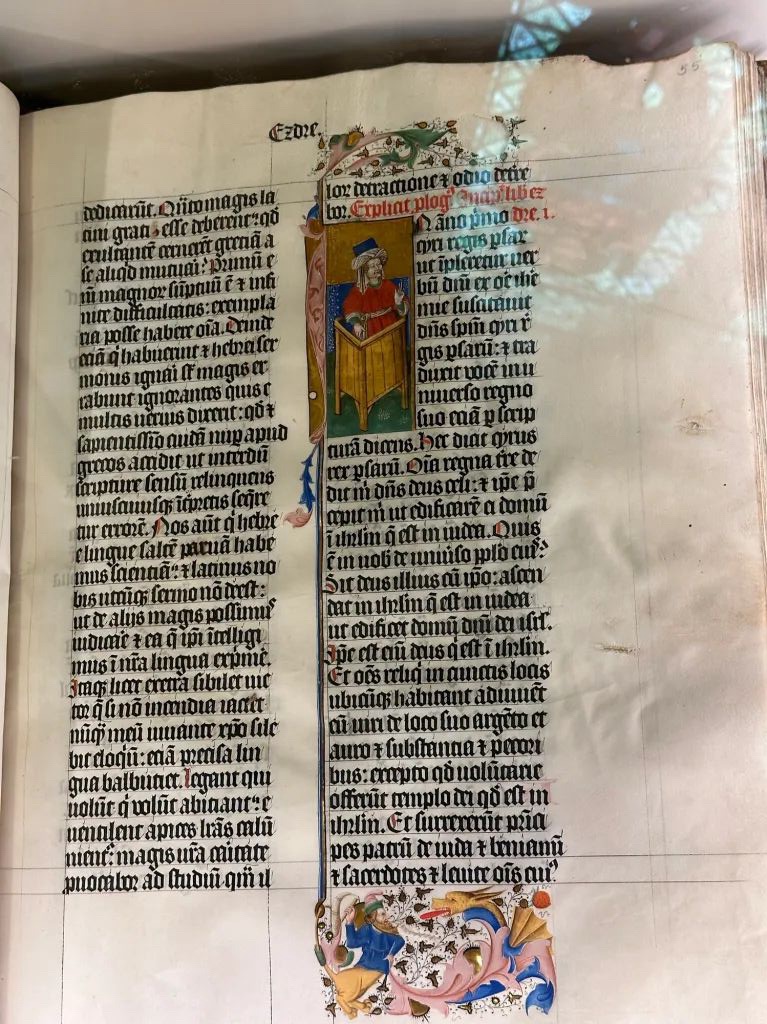 55
Ezdre.
dedicarūt. Qūto magis la
tini grati esse deberent: qd
exultantē cernerēt greciā a
se aliqd mutuari: Primū e
nī magnor sūptuū ē ⁊ infi
nite difficultatis: exempla
ria posse habere oīa. Deinde
eciā q habuerint ⁊ hebrei ser
monis ignari sūt magis er
rabunt ignorantes quis e
multis verius dixerit: qd ⁊
sapientissīo cuidā nup apud
grecos accidit ut interdū
scripture sensū relinquens
uniuscuiusqꝫ īterpretis seqre
tur errorē. Nos aūt q hebre
e lingue saltē parvā habe
mus scientiā: ⁊ latinus no
bis utcūqꝫ sermo nō deest:
ut de alijs magis possumꝰ
iudicare ⁊ ea q ipi ītelligi
mus ī nrā lingua expme.
Itaqꝫ licet excetra sibilet vic
tor q si nō incendia iactet
nūqꝫ meū iuvante xpo sile
bit eloqū: eciā precisa lin
gua balbuciet. Legant qui
volūt q volūt abiciant: e
ventilent apices lrās calū
nient: magis vrā caritate
pvocabor ad studiū qm il
lor detractione ⁊ odio deter
bor. Explicit plogꝰ Incip lib ez
dre. i.
N āno pmo
cyri regis psar
ut īpleretur ver
bū dnī ex ore ihe
mie suscitavit
dn̄s spm cyri r
gis psarū: ⁊ tra
duxit vocē in u
niverso regno
suo eciā p scrip
turā dicens. Hec dicit cyrus
rex psarū. Oīa regna tre de
dit m dn̄s deus celi: ⁊ ipe p
cepit m ut edificarē ei domū
ī ihrlm q est in iudea. Quis
ē in vob de univso pplo eiꝰ?
Sit deus illius cū ipo: ascen
dat in ihrlm q est in iudea
ut edificet domū dnī dei isrl.
Ipe est enī deus q est ī ihrlm.
Et oēs reliq in cunctis locis
ubicūqꝫ habitant adiuvēt
eū viri de loco suo argēto et
auro ⁊ substantia ⁊ pecori
bus: excepto qd volūtarie
offerūt templo dei qd est in
ihrlm. Et surrexerūt prīci
pes patrū de iuda ⁊ beniamī
⁊ sacerdotes ⁊ levite oīs cuiꝰ